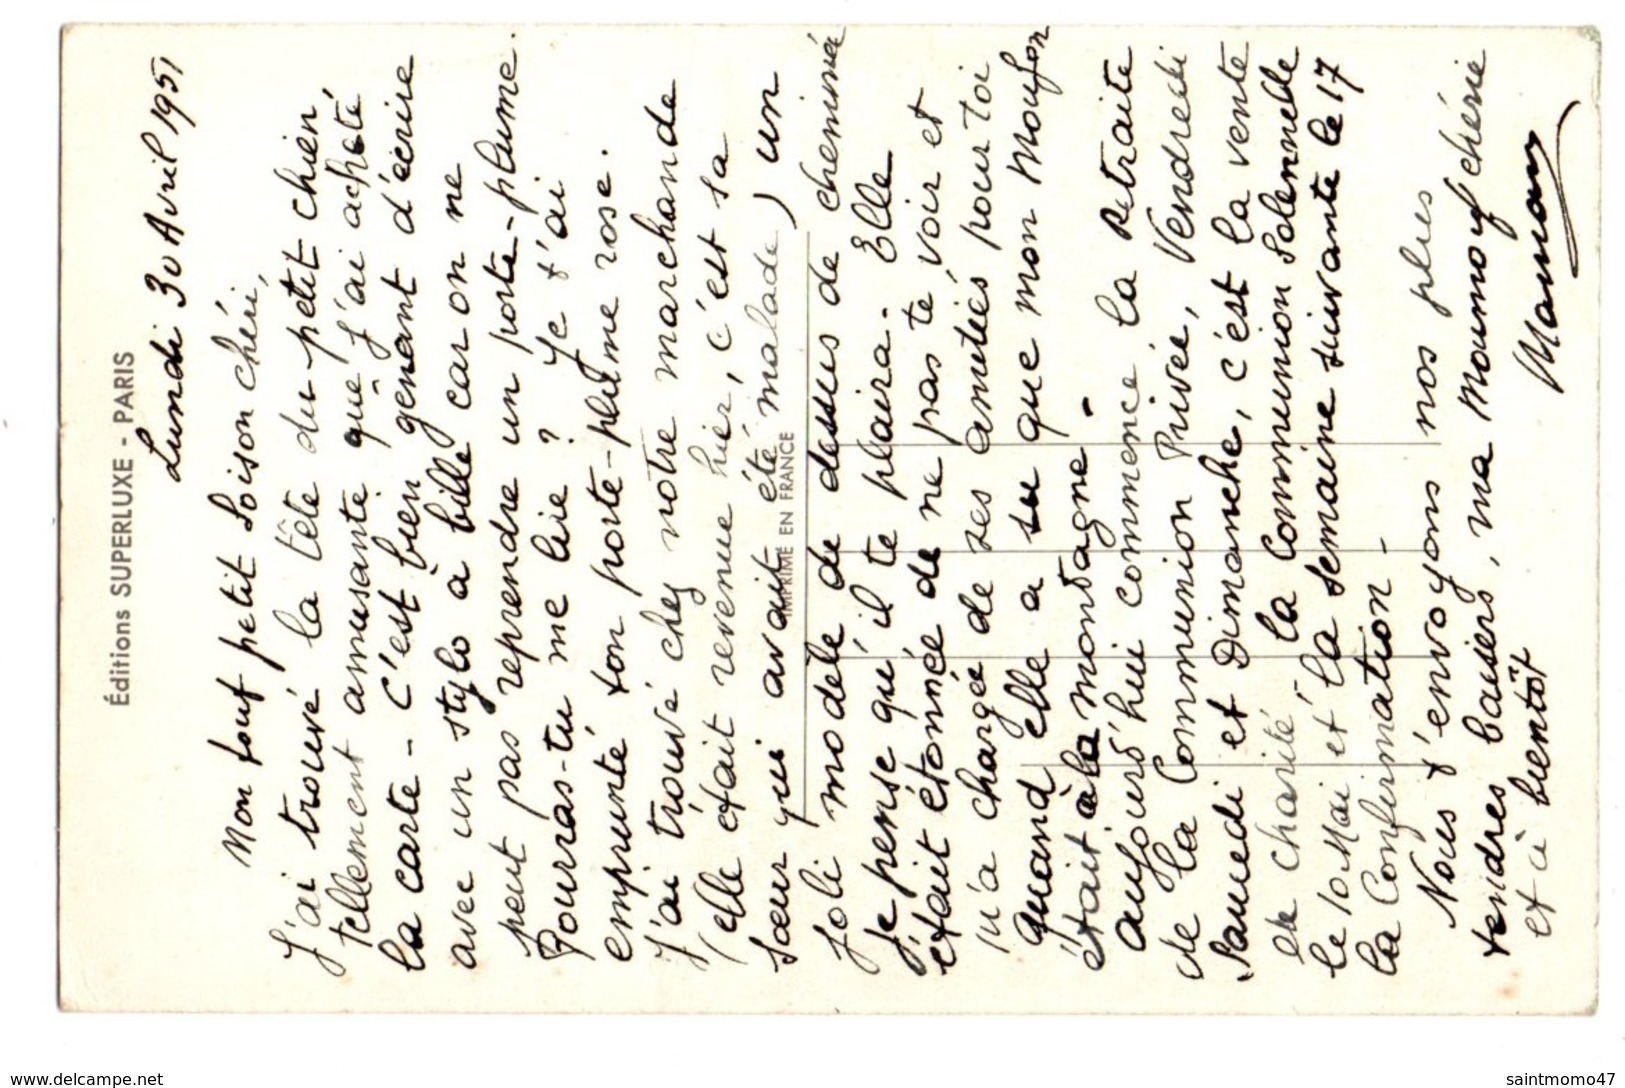 Éditions SUPERLUXE - PARIS
Lundi 30 Avril 1951
Mon fouf petit Loison chéri,
J'ai trouvé la tête du petit chien
tellement amusante que j'ai acheté
la carte - C'est bien gênant d'écrire
avec un stylo à bille car on ne
peut pas reprendre un porte-plume.
Pourras-tu me lire ? Je t'ai
emprunté ton porte-plume rose.
J'ai trouvé chez notre marchande
(elle était revenue hier, c'est sa
sœur qui avait été malade) un
IMPRIMÉ EN FRANCE
joli modèle de dessus de cheminée
Je pense qu'il te plaira. Elle
était étonnée de ne pas te voir et
m'a chargée de ses amitiés pour toi
quand elle a su que mon Moufon
était à la montagne -
aujourd'hui commence la retraite
de la Communion Privée, Vendredi
Samedi et Dimanche, c'est la vente
de Charité la Communion Solennelle
le 10 Mai et la semaine suivante le 17
la Confirmation -
Nous t'envoyons nos plus
tendres baisers, ma Moumouf chérie
et à bientôt
Maman
www.delcampe.net
saintmomo47